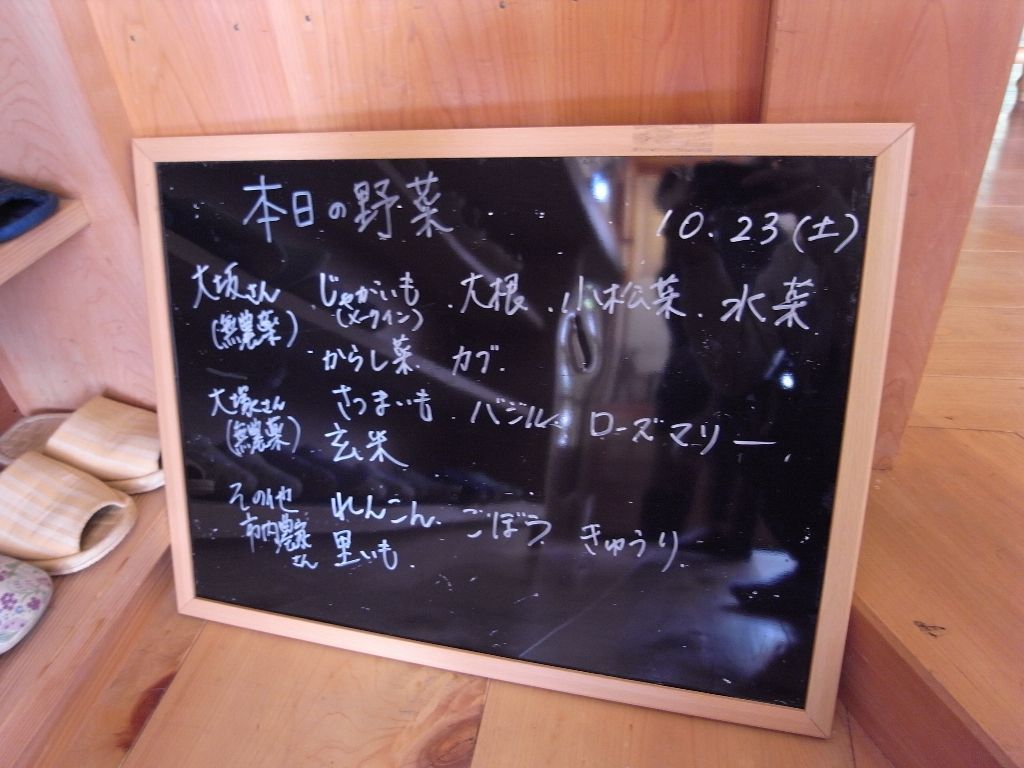 本日の野菜 10.23(土)
大坂さん じゃがいも ・大根 ・小松菜 ・水菜
(無農薬) (メークイン)
・からし菜 カブ
大塚さん さつまいも ・バジル ローズマリー
(無農薬) 玄米
その他 れんこん ごぼう きゅうり
市内農家 里いも
さん